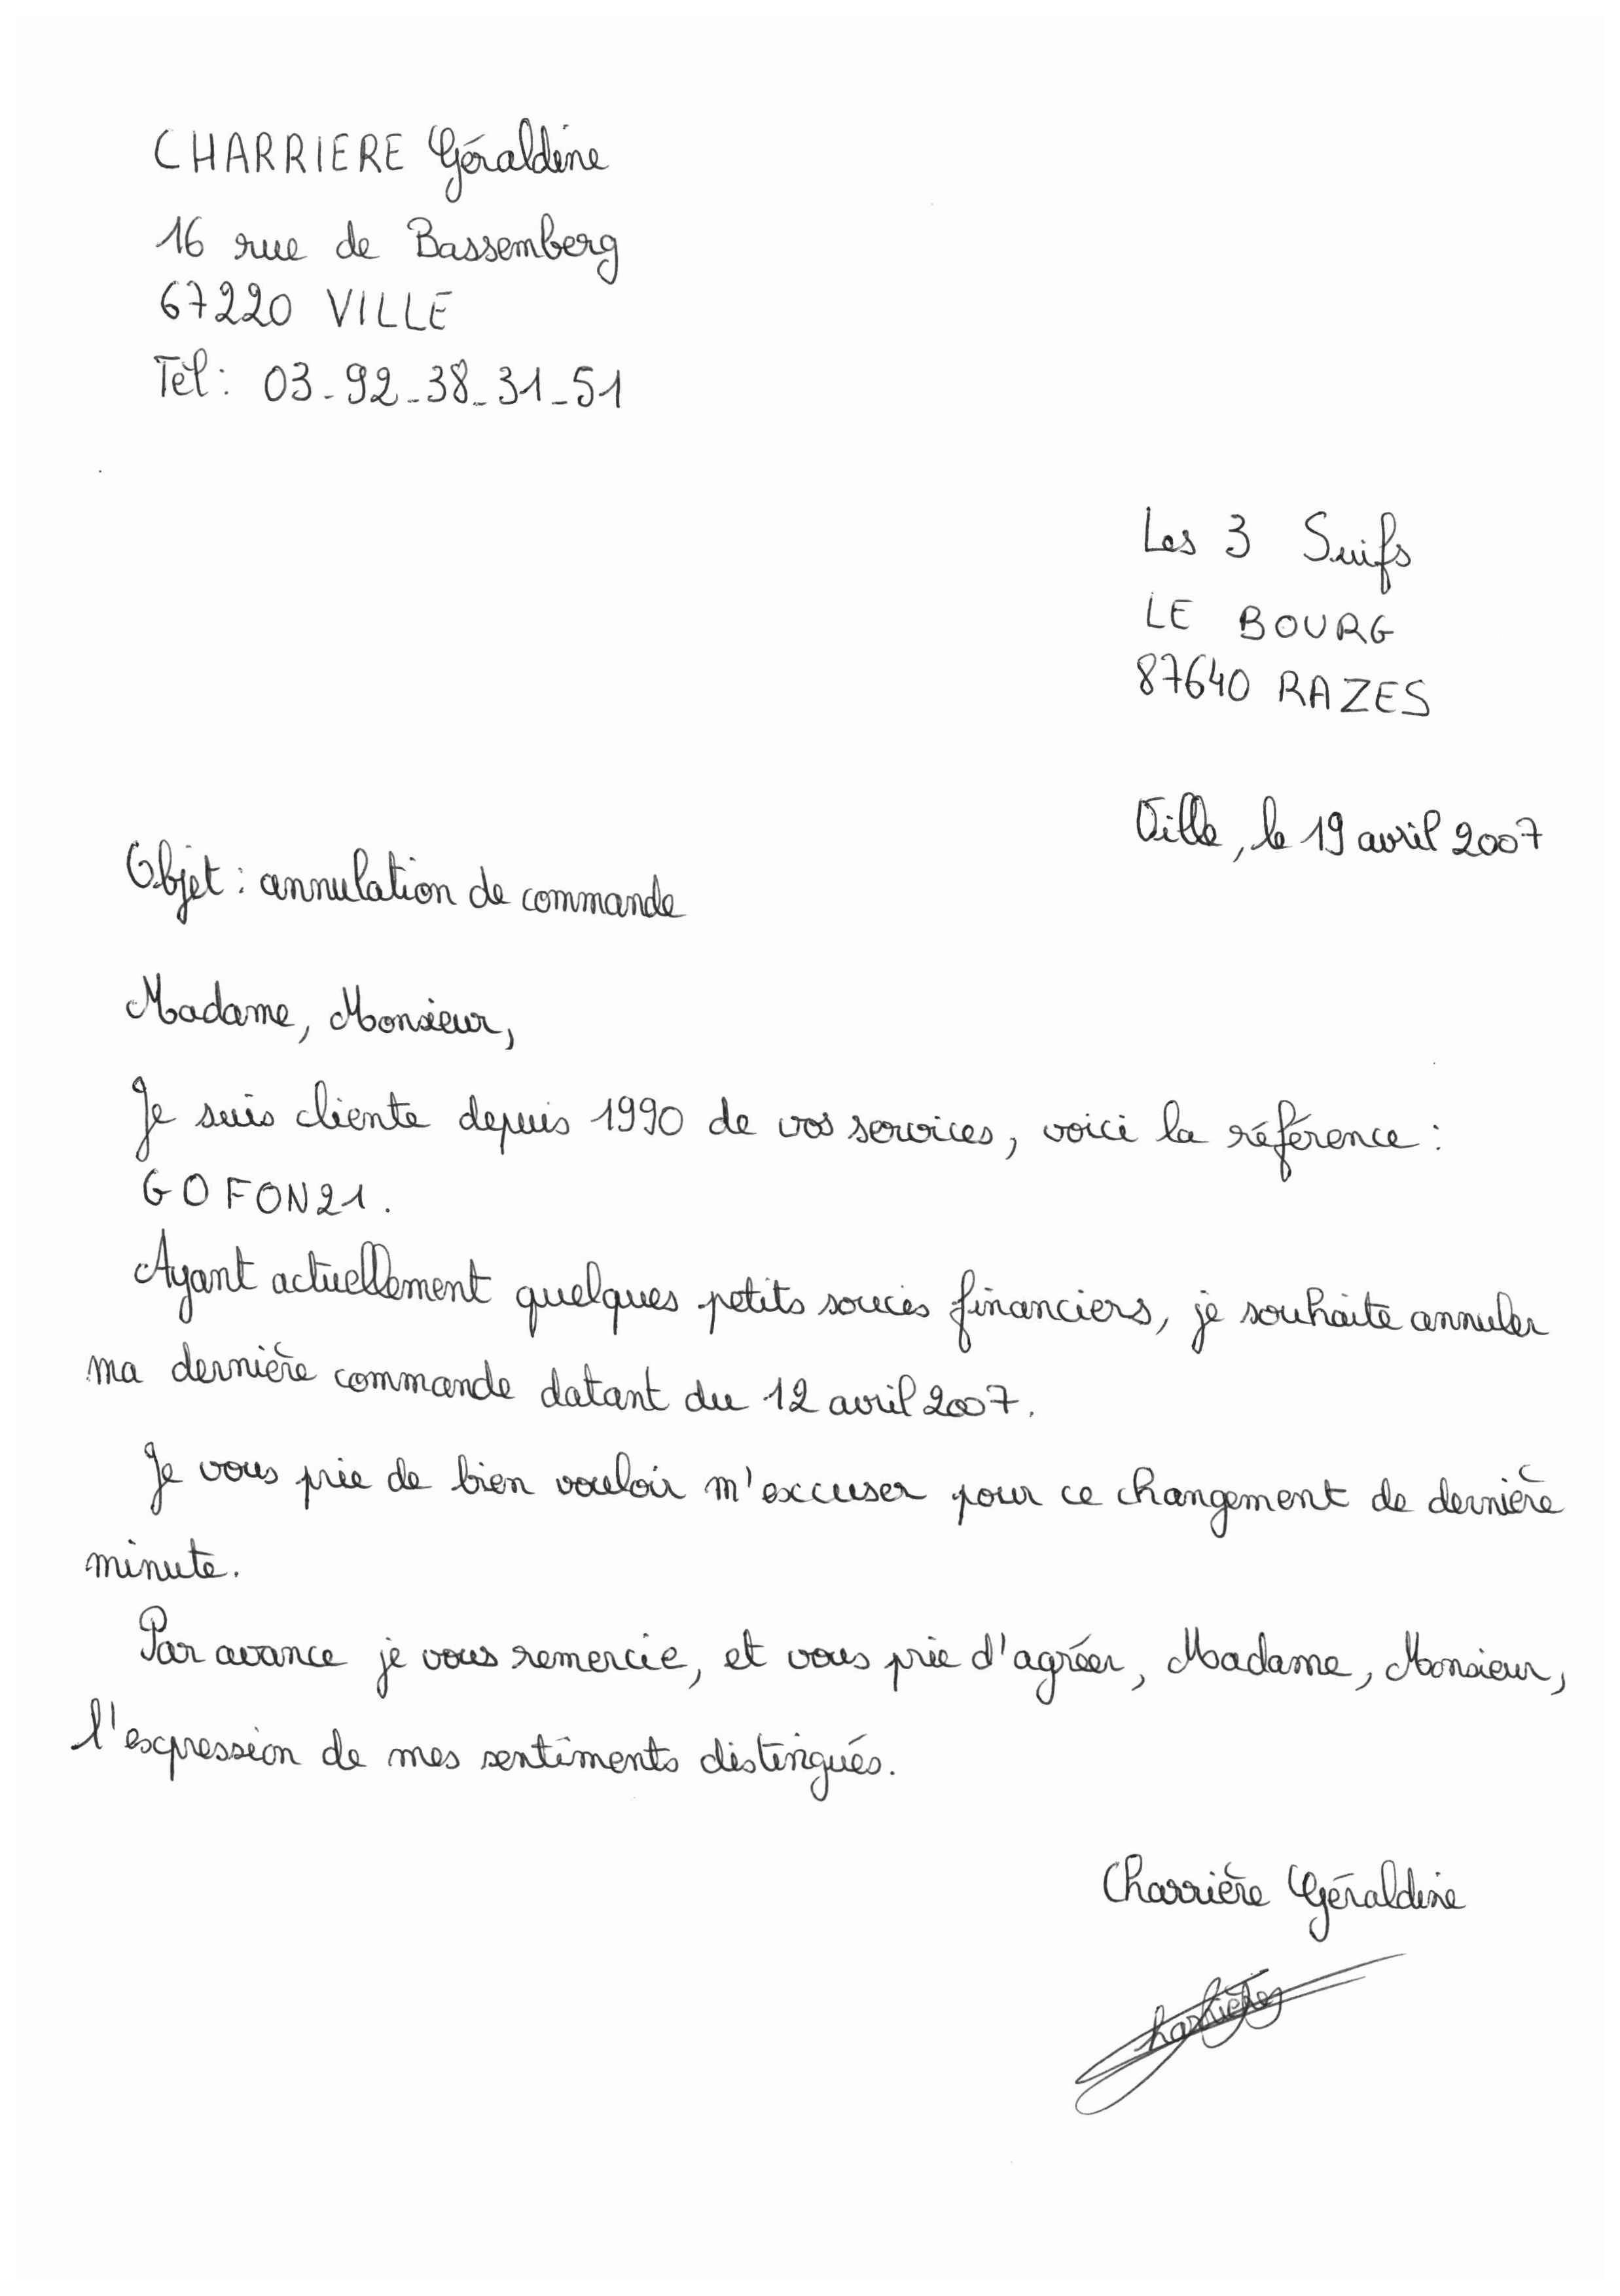 CHARRIERE Géraldine
16 rue de Bassemberg
67220 VILLE
Tél : 03-92-38-31-51
Les 3 Suifs
LE BOURG
87640 RAZES
Ville, le 19 avril 2007
Objet : annulation de commande
Madame, Monsieur,
Je suis cliente depuis 1990 de vos services, voici la référence :
GOFON21.
Ayant actuellement quelques petits soucis financiers, je souhaite annuler
ma dernière commande datant du 12 avril 2007.
Je vous prie de bien vouloir m'excuser pour ce changement de dernière
minute.
Par avance je vous remercie, et vous prie d'agréer, Madame, Monsieur,
l'expression de mes sentiments distingués.
Charrière Géraldine